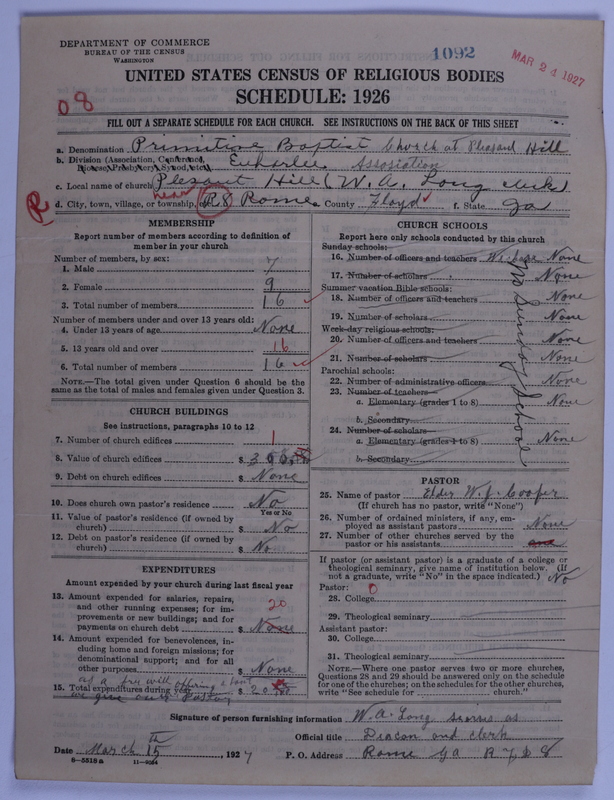 DEPARTMENT OF COMMERCE
BUREAU OF THE CENSUS
WASHINGTON
1092
MAR 24 1927
UNITED STATES CENSUS OF RELIGIOUS BODIES
SCHEDULE: 1926
08
FILL OUT A SEPARATE SCHEDULE FOR EACH CHURCH. SEE INSTRUCTIONS ON THE BACK OF THIS SHEET
a. Denomination Primitive Baptist Church at Pleasant Hill
b. Division (Association, Conference, Diocese, Presbytery, Synod, etc.) Euharlee Association
c. Local name of church Plesant Hill (W. A. Long clerk)
R
d. City, town, village, or township, near R8 Rome County Floyd f. State Ga
MEMBERSHIP
Report number of members according to definition of member in your church
Number of members, by sex:
1. Male 7
2. Female 9
3. Total number of members 16
Number of members under and over 13 years old:
4. Under 13 years of age None
5. 13 years old and over 16
6. Total number of members 16
NOTE.—The total given under Question 6 should be the same as the total of males and females given under Question 3.
CHURCH BUILDINGS
See instructions, paragraphs 10 to 12
7. Number of church edifices 1
8. Value of church edifices $
9. Debt on church edifices $ None
10. Does church own pastor's residence No
Yes or No
11. Value of pastor's residence (if owned by church) $ No
12. Debt on pastor's residence (if owned by church) $ No
EXPENDITURES
Amount expended by your church during last fiscal year
13. Amount expended for salaries, repairs, and other running expenses; for improvements or new buildings; and for payments on church debt $ None 20
14. Amount expended for benevolences, including home and foreign missions; for denominational support; and for all other purposes $ None
as a free will offering about
15. Total expenditures during year $ 20.00
we give our Pastor
CHURCH SCHOOLS
Report here only schools conducted by this church
Sunday schools:
16. Number of officers and teachers We have None
17. Number of scholars None
Summer vacation Bible schools:
18. Number of officers and teachers None
19. Number of scholars None
Week-day religious schools:
20. Number of officers and teachers None
21. Number of scholars None
Parochial schools:
22. Number of administrative officers None
23. Number of teachers—
a. Elementary (grades 1 to 8) None
b. Secondary
24. Number of scholars—
a. Elementary (grades 1 to 8) None
b. Secondary
No Sunday School
PASTOR
25. Name of pastor Elder W. J. Cooper
(If church has no pastor, write "None")
26. Number of ordained ministers, if any, employed as assistant pastors None
27. Number of other churches served by the pastor or his assistants
If pastor (or assistant pastor) is a graduate of a college or theological seminary, give name of institution below. (If not a graduate, write "No" in the space indicated.) No
Pastor: 0
28. College
29. Theological seminary
Assistant pastor:
30. College
31. Theological seminary
NOTE.—Where one pastor serves two or more churches, Questions 28 and 29 should be answered only on the schedule for one of the churches; on the schedules for the other churches, write "See schedule for church."
Signature of person furnishing information W. A. Long
Official title Deacon and clerk
Date March 15th, 1927
P. O. Address Rome Ga R F D 8
8—5518a 11—9064